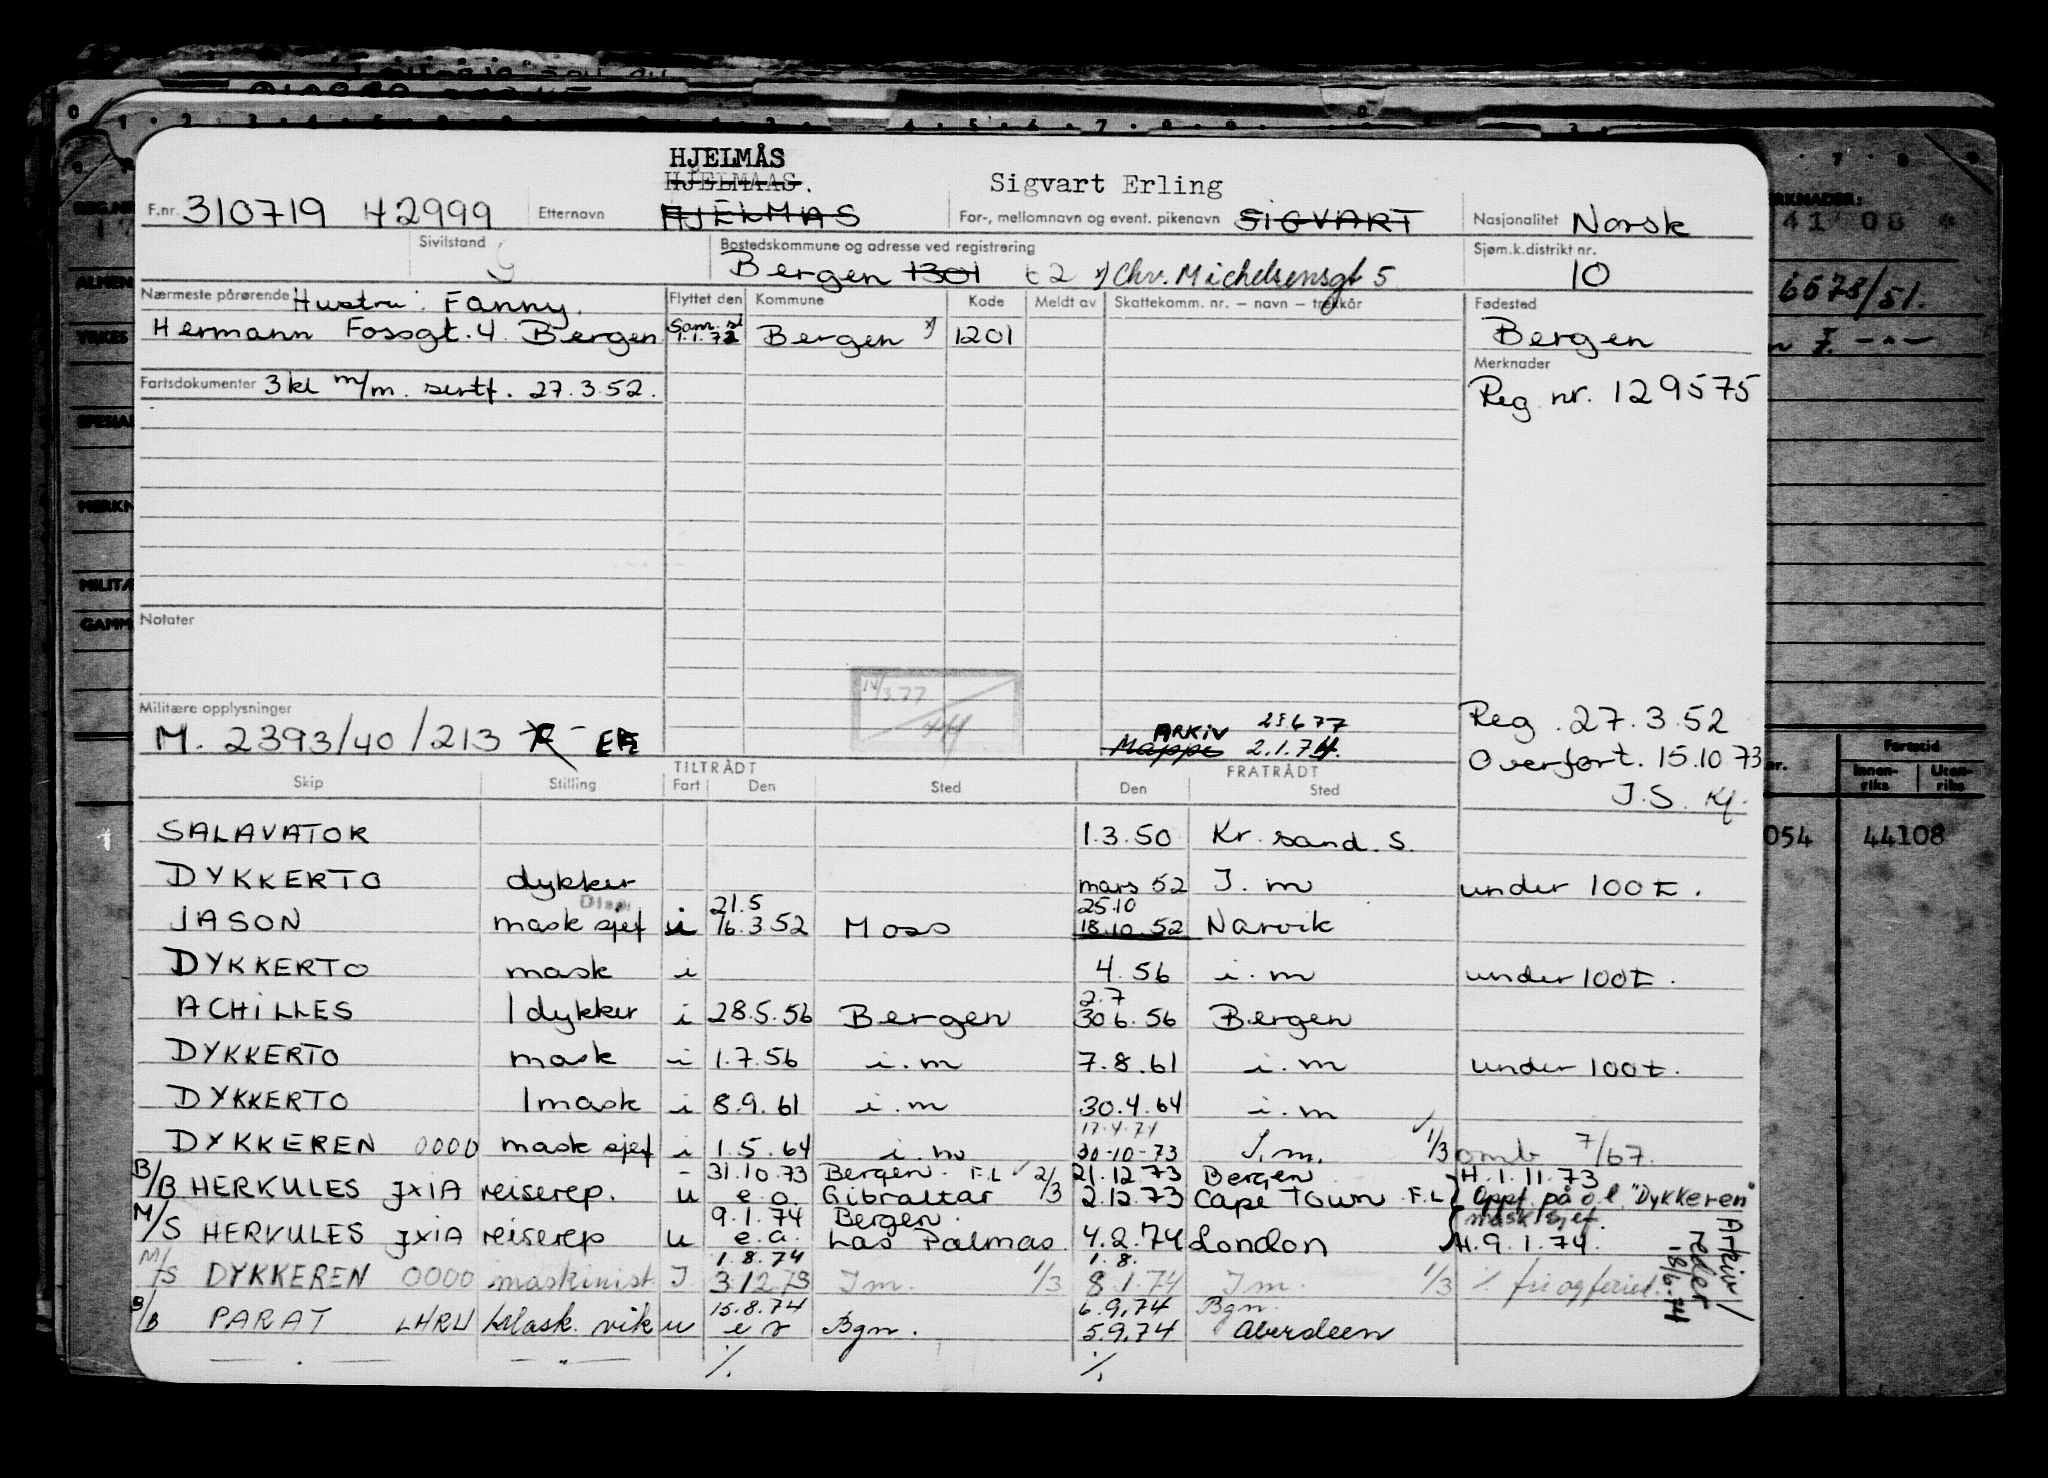 HJELMÅS
HJELMAAS. Sigvart Erling
F.nr. 310719 42999 Etternavn HJELMAS For-, mellomnavn og event. pikenavn SIGVART Nasjonalitet Norsk
Sivilstand g Bostedskommune og adresse ved registrering Sjøm.k.distrikt nr.
Bergen 1301 x) Chr. Michelsensgt 5 10
Nærmeste pårørende Hustru: Fanny, Flyttet den Kommune Kode Meldt av Skattekomm. nr. — navn — trekkår Fødested
Hermann Fossgt. 4 Bergen 1.1.72 Bergen x) 1201 Bergen
Merknader
Fartsdokumenter 3 kl m/m. sertf. 27.3.52. Reg. nr. 129575
Notater
14/3.77
Militære opplysninger
Reg. 27.3.52
M. 2393/40/213
ARKIV 28677
Mappe 2.1.74.
Overført. 15.10 73
J.S. Kf.
TILTRÅDT FRATRÅDT
Skip Stilling Fart Den Sted Den Sted
SALAVATOR 1.3.50 Kr. sand. S.
DYKKERTO dykker mars 52 I. m under 100t.
Disp. 21.5 25.10
JASON mask sjef u 16.3.52 Moss 18.10.52 Narvik
DYKKERTO mask i 4.56 i.m under 100t.
2.7
ACHILLES 1 dykker i 28.5.56 Bergen 30 6.56 Bergen
DYKKERTO mask i 1.7.56 i.m 7.8.61 i.m under 100t.
DYKKERTO 1 mask i 8.9.61 i.m 30.4.64 i.m
17.4.74
DYKKEREN 0000 mask sjef i 1.5.64 i.m 30-10-73 I.m. 1/3 omb 7/67.
31.10.73 Bergen. F.L 2/3 21.12.73 Bergen H.1.11.73
B/B HERKULES JXIA reiserep. u e.o. Gibraltar 2.12.73 Cape Town F.L Oppf. på o.l "Dykkeren"
9.1.74 Bergen. mask sjef.
M/S HERKULES JXIA reiserep u e.a. Las Palmas. 4.2.74 London H.9.1.74.
1.8.74 1.8.
M/S DYKKEREN 0000 maskinist I 3.12.73 Im. 1/3 8.1.74 Im. 1/3 % fri og ferie.
15.8.74 6.9.74 Bgn.
B/B PARAT LHRU Mask. vik u Bgn. 5.9.74 Aberdeen
— . — — " — %. %.
Arkiv/
reder
18/6.74
REG.NR
ALMEN
YRKES
SPESIA
MERKN
MILITÆ
GAMM
1
ERKNADER:
41 08
6678/51.
Fartstid
nr. Innen-riks Uten-riks
054 44108